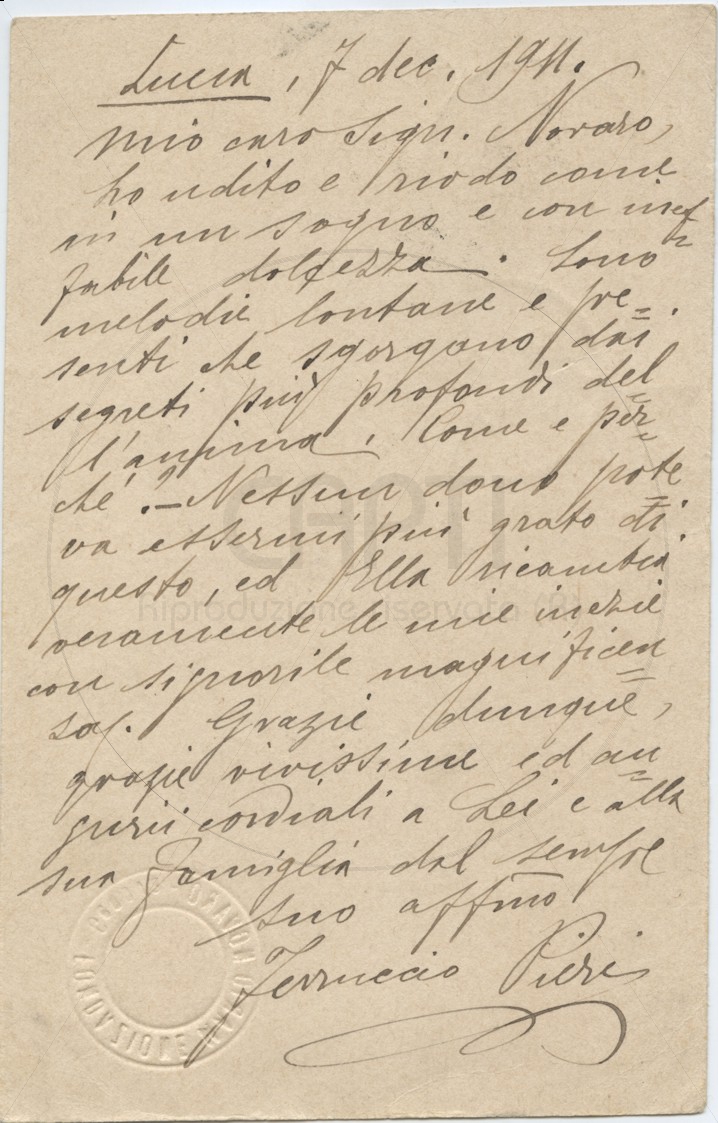 Lucca, 7 dec. 1911.
Mio caro Sign. Novaro,
ho udito e riodo come
in un sogno e con inef=
fabile dolcezza. Sono
melodie lontane e pre=
senti che sgorgano dai
segreti più profondi del=
l'anima. Come e per=
ché? – Nessun dono pote=
va essermi più grato di
questo, ed Ella ricambia
veramente le mie inezie
con signorile magnificen=
za. Grazie dunque,
grazie vivissime ed au=
gurii cordiali a Lei e alla
sua famiglia dal sempre
suo affmo
Ferruccio Pieri
CARTI
riproduzione riservata
FONDAZIONE MARIO NOVARO